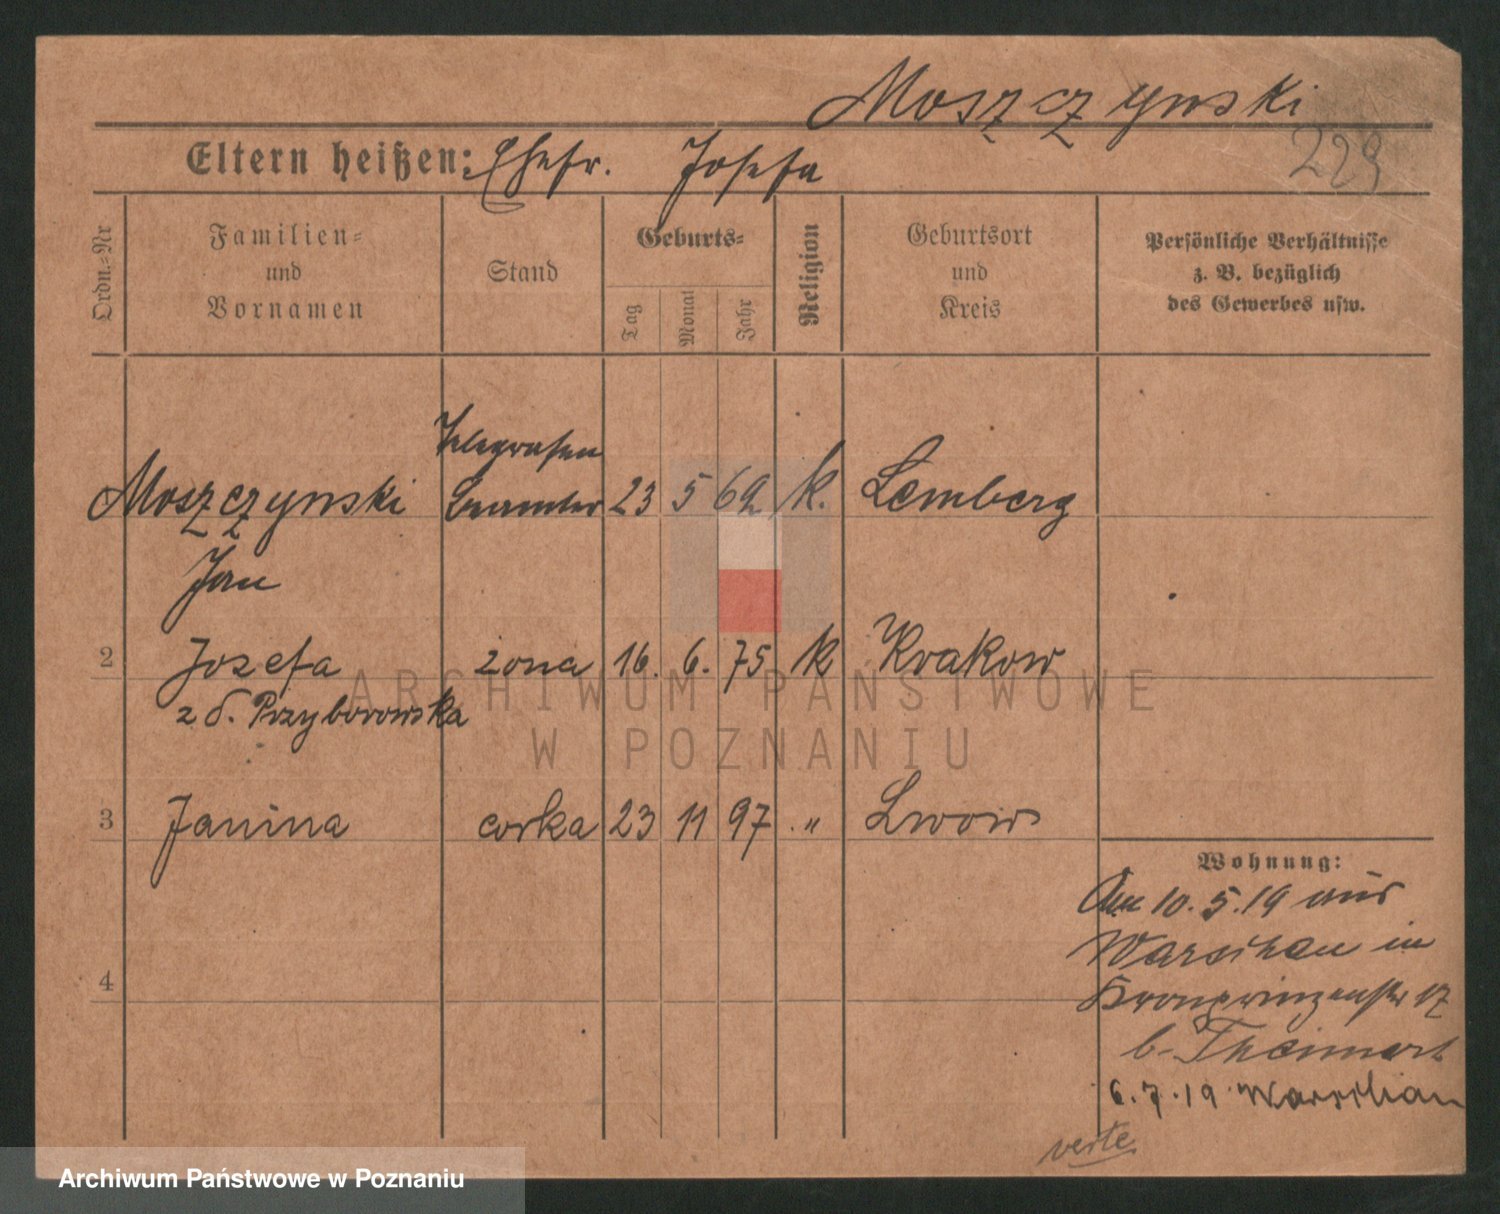 Moszczynski
229
Eltern heißen: Ehefr. Josefa
Ordn.-Nr
Familien-
und
Vornamen
Stand
Geburts-
Tag
Monat
Jahr
Religion
Geburtsort
und
Kreis
Persönliche Verhältnisse
z. B. bezüglich
des Gewerbes usw.
Telegrafen
Moszczynski Beamter 23 5 69 k. Lemberg
Jan
2 Jozefa zona 16. 6. 75 k Krakow
z d. Przyborowska
3 Janina corka 23 11 97 . " Lwow
4
Wohnung:
Am 10.5.19 aus
Warschau in
Kronprinzenstr 17
b.
6.7.19 Warschau
verte
ARCHIWUM PAŃSTWOWE
W POZNANIU
Archiwum Państwowe w Poznaniu